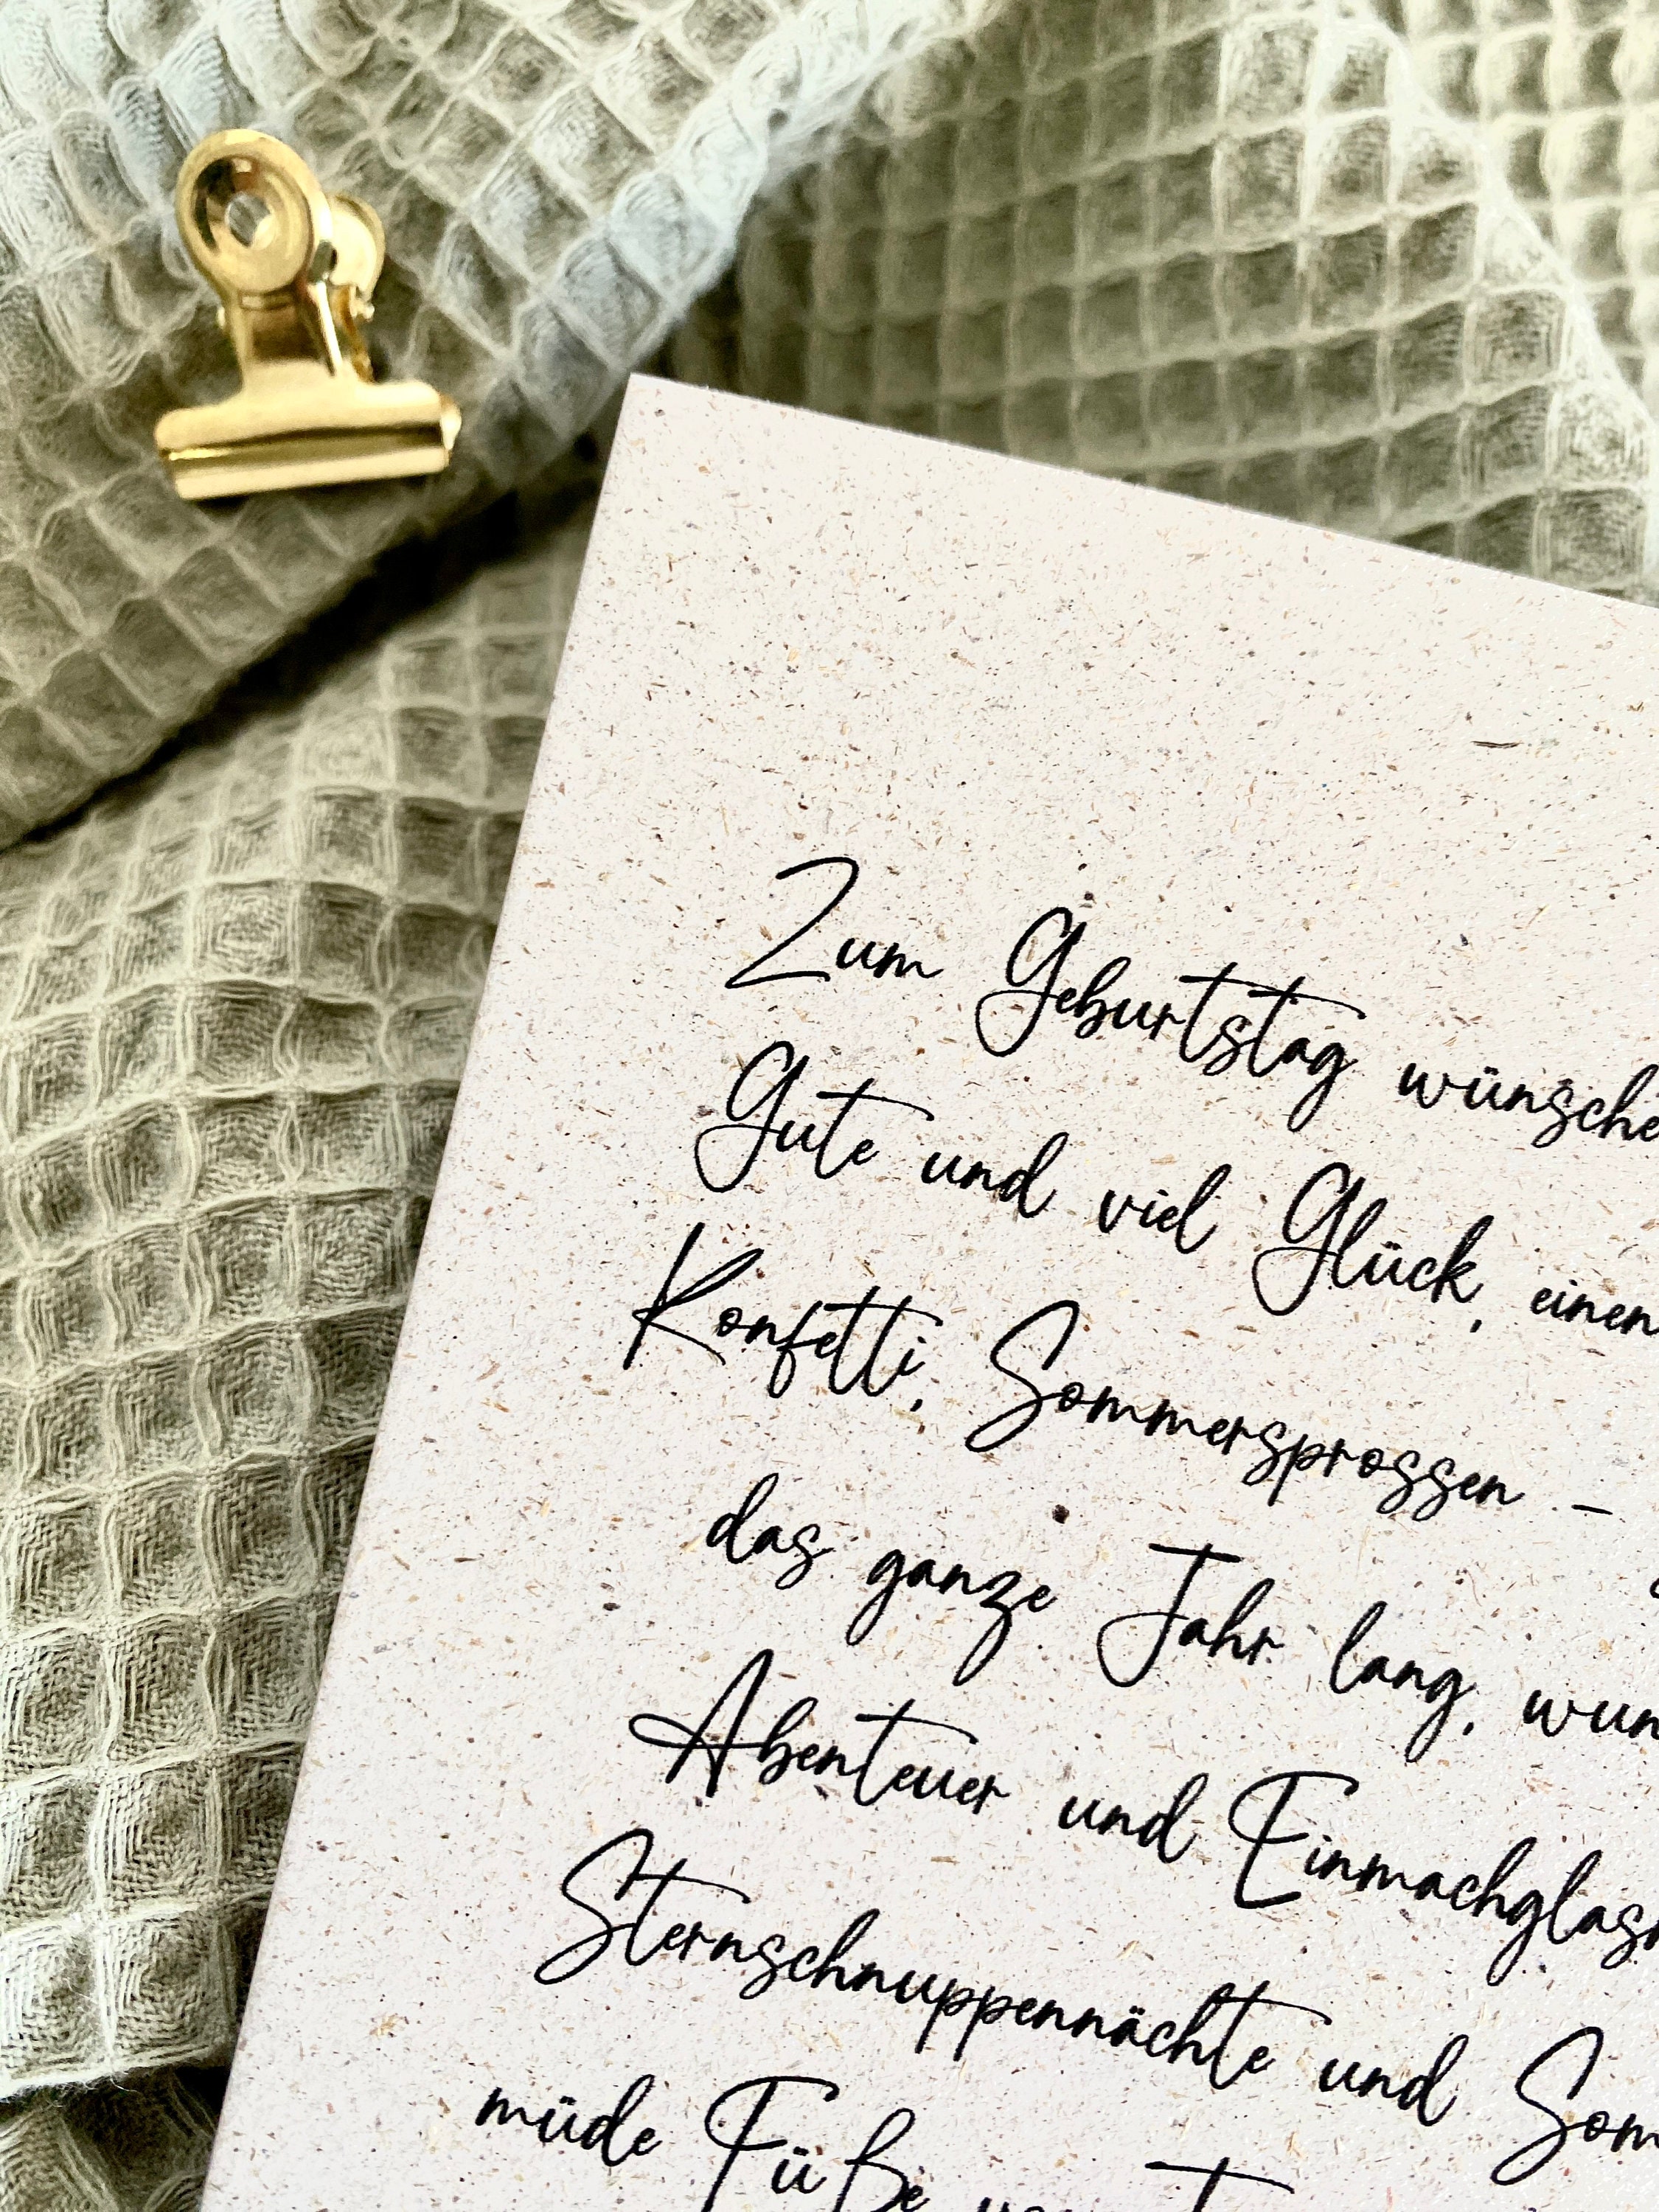 Zum Geburtstag wünsche
Gute und viel Glück, einen
Konfetti, Sommersprossen -
das ganze Jahr lang, wun
Abenteuer und Einmachglas
Sternschnuppennächte und Som
müde Füße